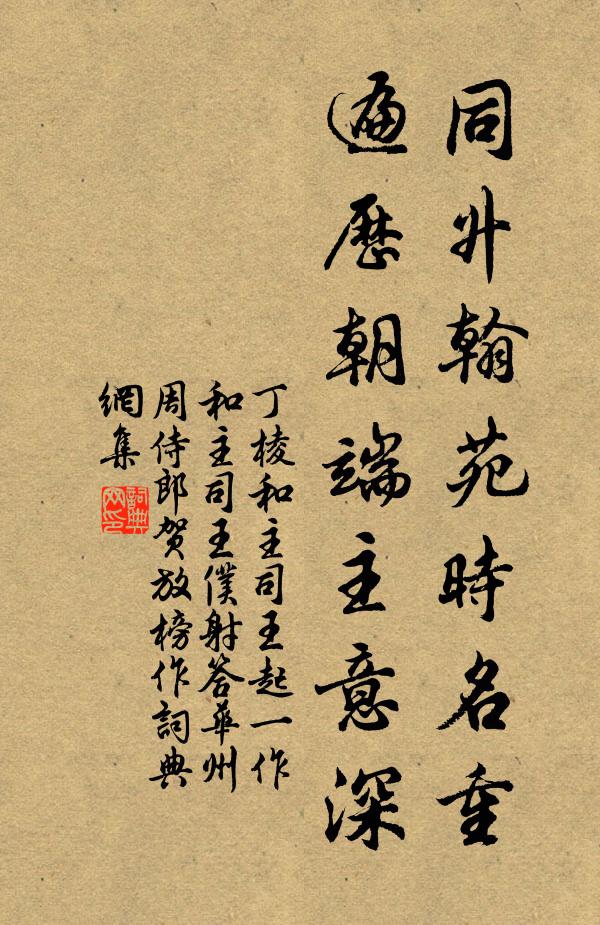 同升翰苑時名重
遍歷朝端主意深
丁棱和主司王起一作
和主司王僕射答華州
周侍郎贺放榜作詞典
網集
詞典
网印